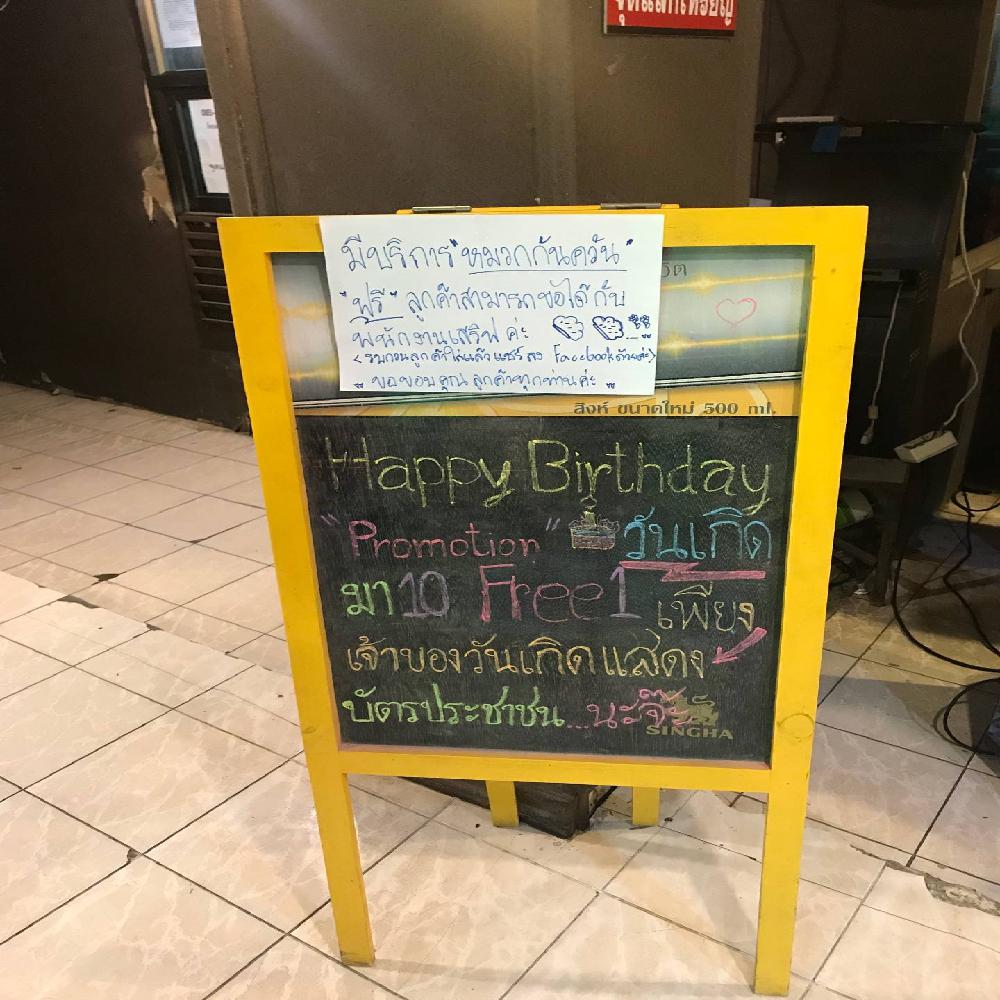 จุดแลกเหรียญ
มีบริการ "หมวกกันควัน"
"ฟรี" ลูกค้าสามารถขอได้กับ
พนักงานเสริฟค่ะ
(รบกวนลูกค้าใส่แล้วแชร์ลง Facebook ด้วยค่ะ)
ขอขอบคุณลูกค้าทุกท่านค่ะ
สิงห์ ขนาดใหม่ 500 ml.
Happy Birthday
"Promotion" วันเกิด
มา 10 Free 1 เพียง
เจ้าของวันเกิดแสดง
บัตรประชาชน...นะจ๊ะ
SINGHA